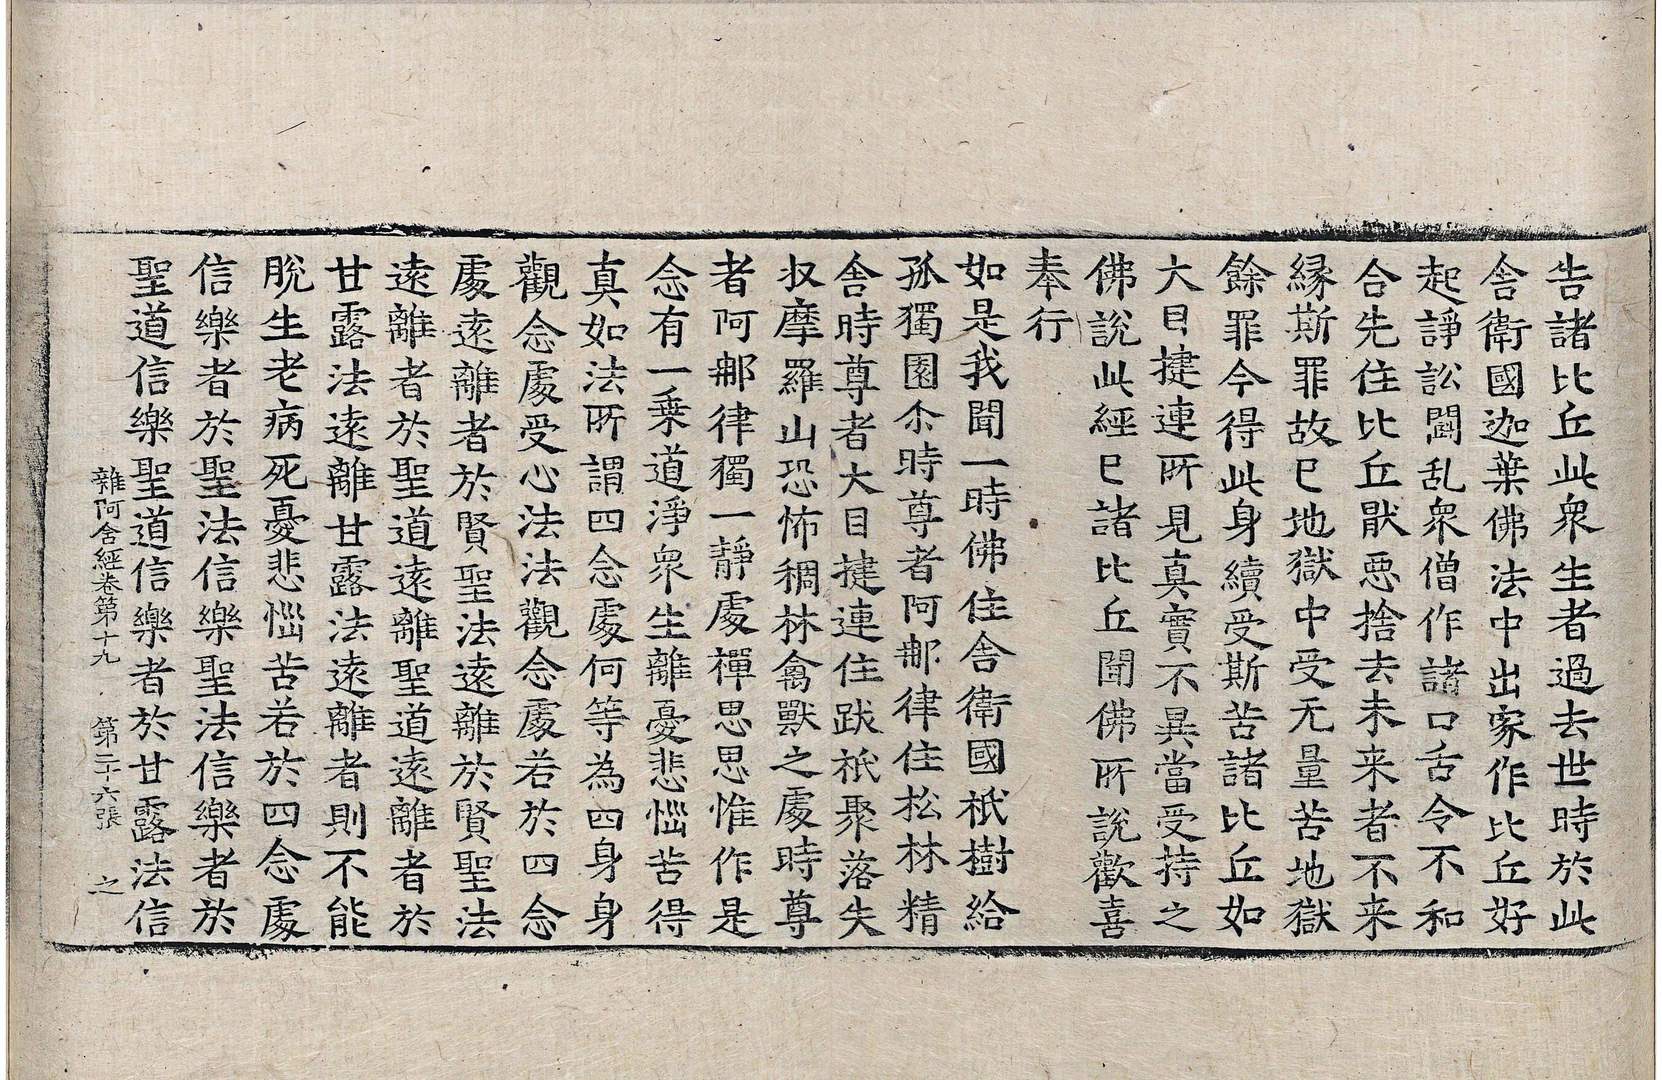 告諸比丘此衆生者過去世時於此
舎衛國迦葉佛法中出家作比丘好
起諍訟闘乱衆僧作諸口舌令不和
合先住比丘猒悪捨去未来者不来
縁斯罪故巳地獄中受无量苦地獄
餘罪今得此身續受斯苦諸比丘如
大目揵連所見真實不異當受持之
佛説此經巳諸比丘聞佛所説歡喜
奉行
如是我聞一時佛住舎衛國祇樹給
孤獨園尒時尊者阿那律住松林精
舎時尊者大目揵連住跋祇聚落失
収摩羅山恐怖稠林禽獸之處時尊
者阿那律獨一静處禪思思惟作是
念有一乗道淨衆生離憂悲惱苦得
真如法所謂四念處何等為四身身
觀念處受心法法觀念處若於四念
處遠離者於賢聖法遠離於賢聖法
遠離者於聖道遠離聖道遠離者於
甘露法遠離甘露法遠離者則不能
脱生老病死憂悲惱苦若於四念處
信樂者於聖法信樂聖法信樂者於
聖道信樂聖道信樂者於甘露法信
雜阿含經卷第十九 第二十六張 之